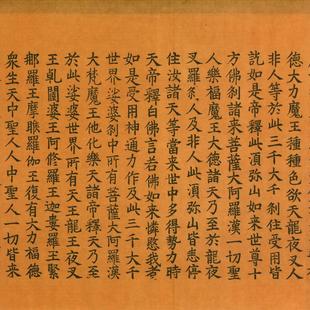 德大力魔王種種色欲天龍夜叉
非人等於此三千大千剎住受用皆
訖如是帝釋此湏弥山如来世尊十
方佛剎諸来菩薩大阿羅漢一切聖
人樂福魔王大德諸天乃至於龍夜
叉羅剎人及非人此湏弥山皆悉停
住汝諸天等當来世中多得勢力時
天帝釋白佛言若佛如来憐愍我者
如是受用神通力作及此三千大千
世界娑婆剎中所有菩薩大阿羅漢
大梵魔王他化樂天諸帝釋天乃至
於此娑婆世界所有天王龍王夜叉
王乹闥婆王阿修羅王迦婁羅王緊
那羅王摩睺羅伽王復有大力福德
衆生天中聖人人中聖人一切皆来